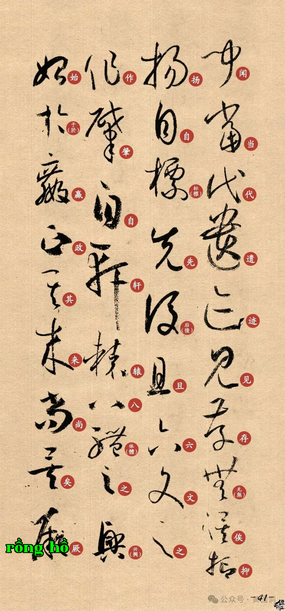 闻当代遗迹见存無俟抑
扬自标先後且六文之
作肇自轩辕八體之興
始於嬴政其来尚矣厥
rồng hổ
公众号
-41-